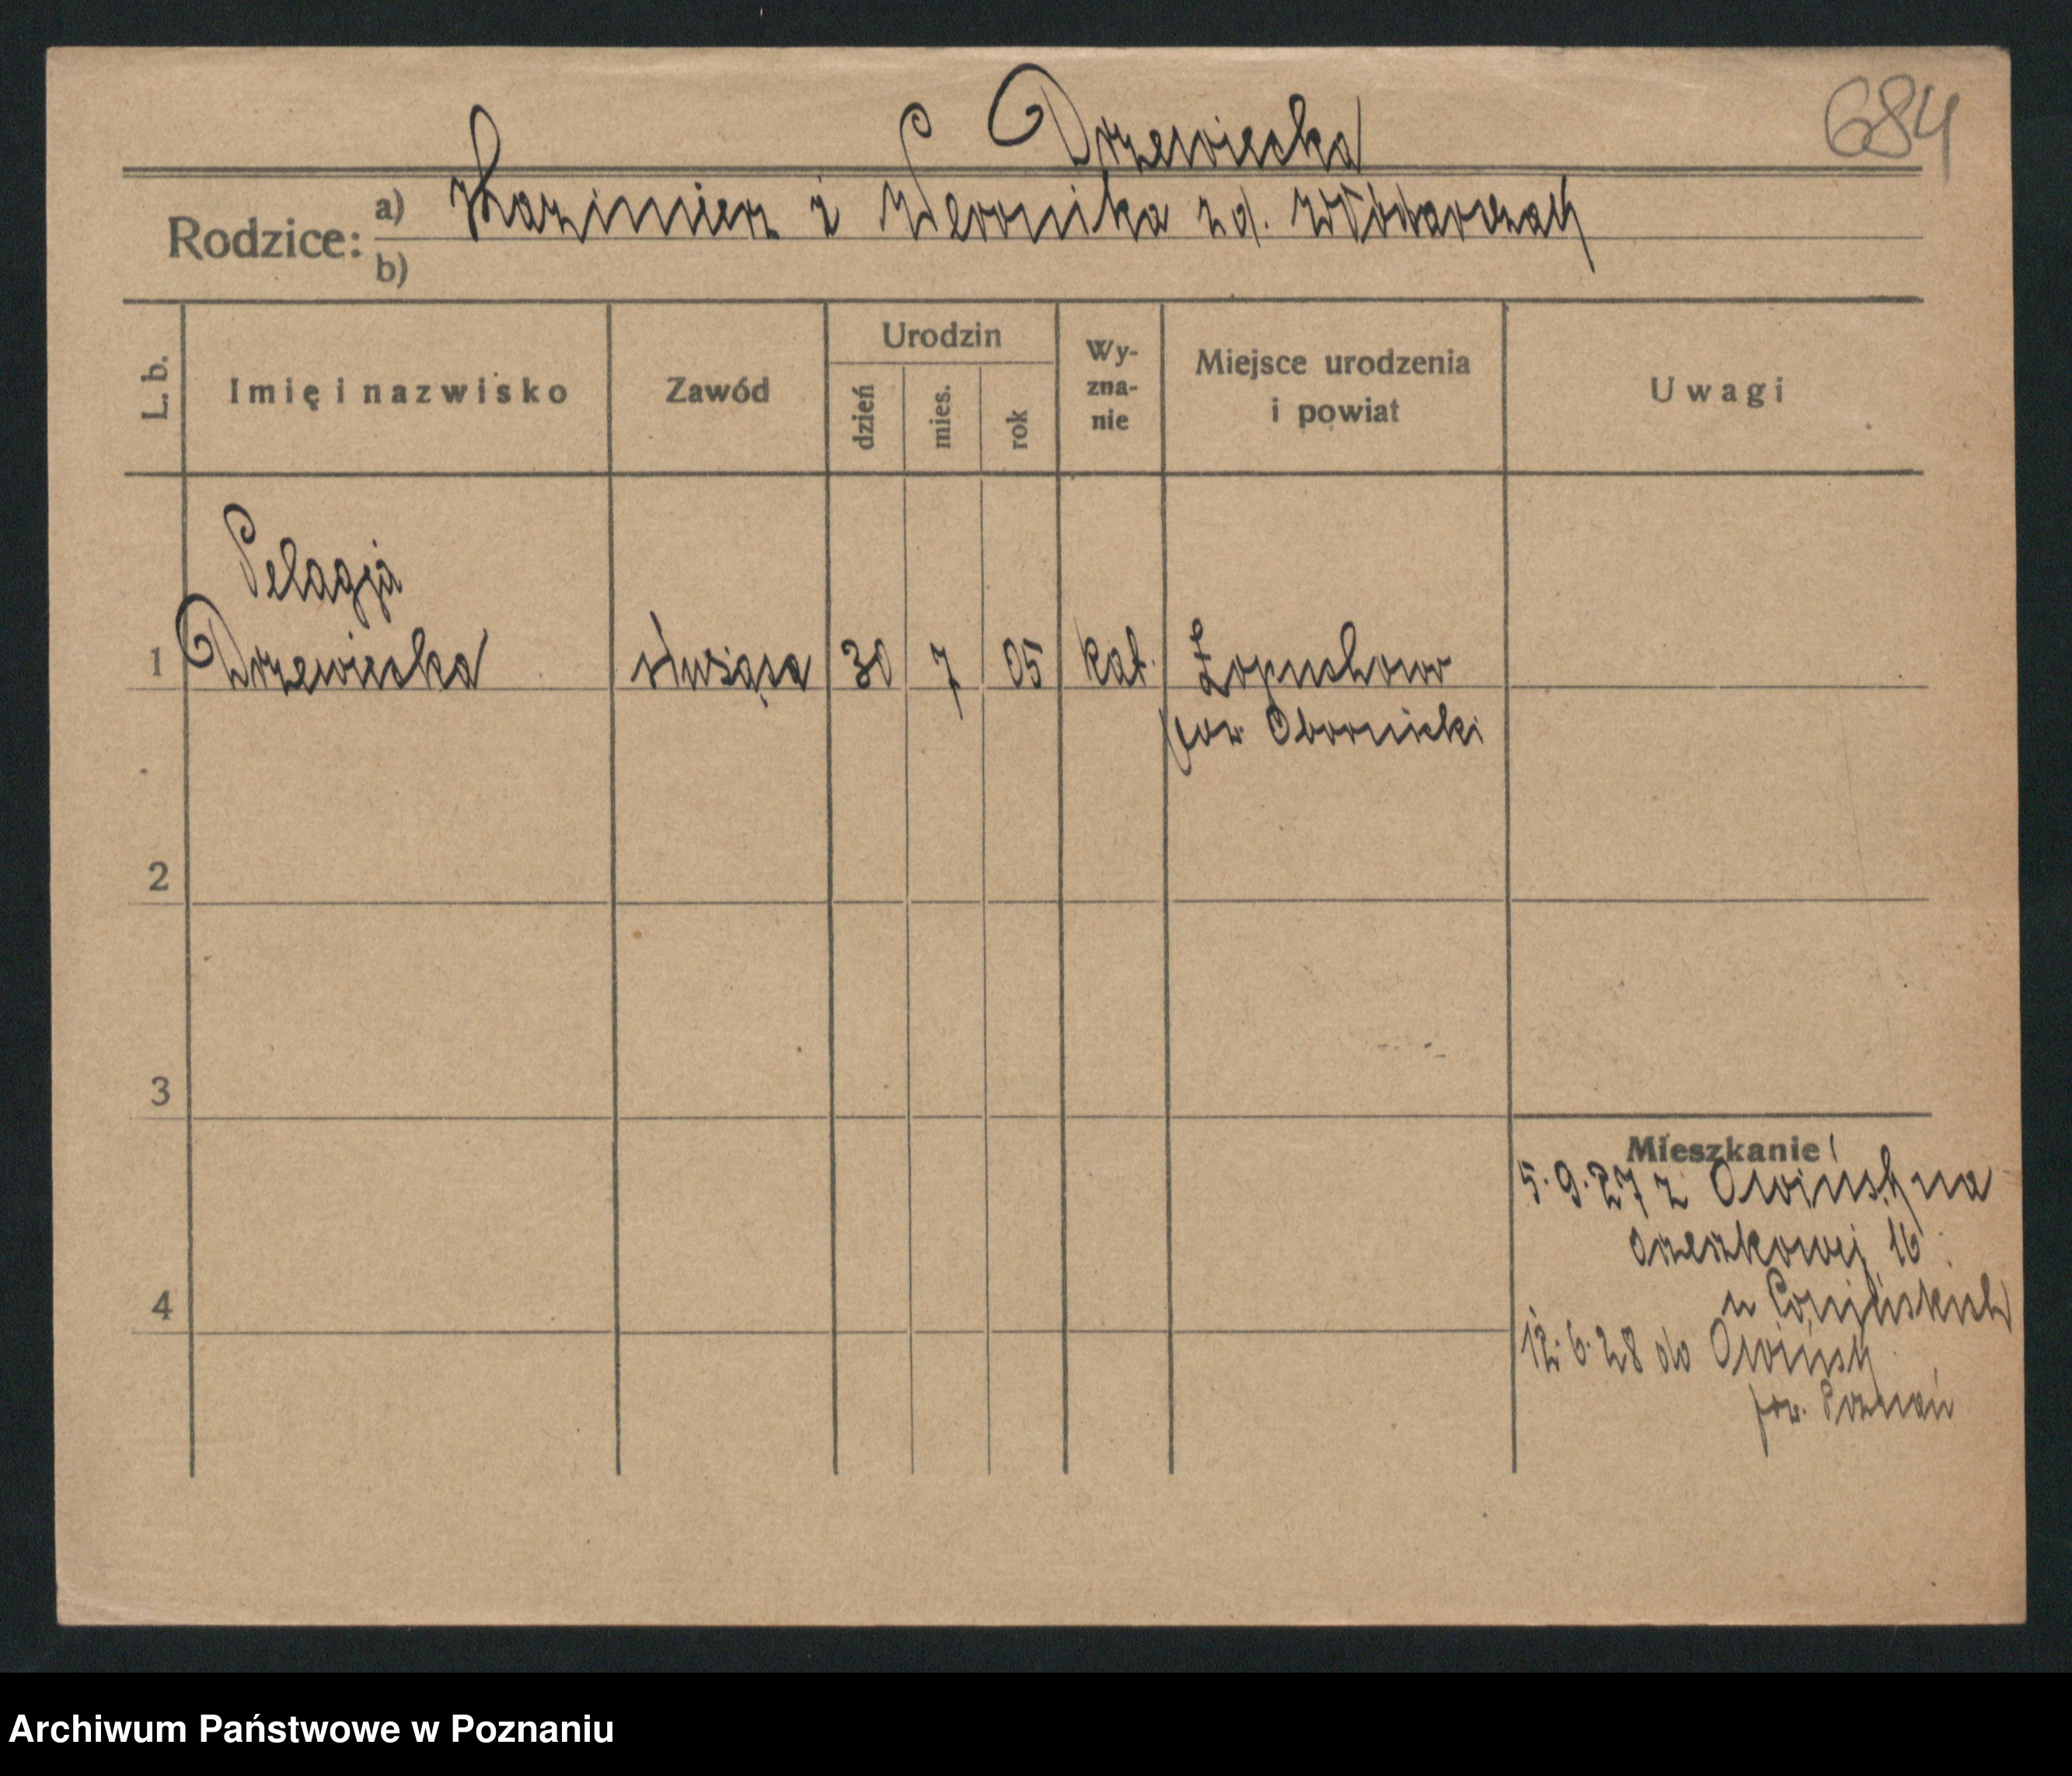 684
P Drzewiecka
Rodzice: a) Kazimierz i Weronika zd. Włódarczach
b)
L. b. Imię i nazwisko Zawód Urodzin dzień mies. rok Wyzna-nie Miejsce urodzenia i powiat Uwagi
Pelagja
1 Drzewiecka służąca 30 7 05 kat. Łopuchowo
pow Obornicki
2
3
Mieszkanie
5.9.27 z Owińsk na
16
4
12.6.28 do Owińsk
pow. Poznań
Archiwum Państwowe w Poznaniu